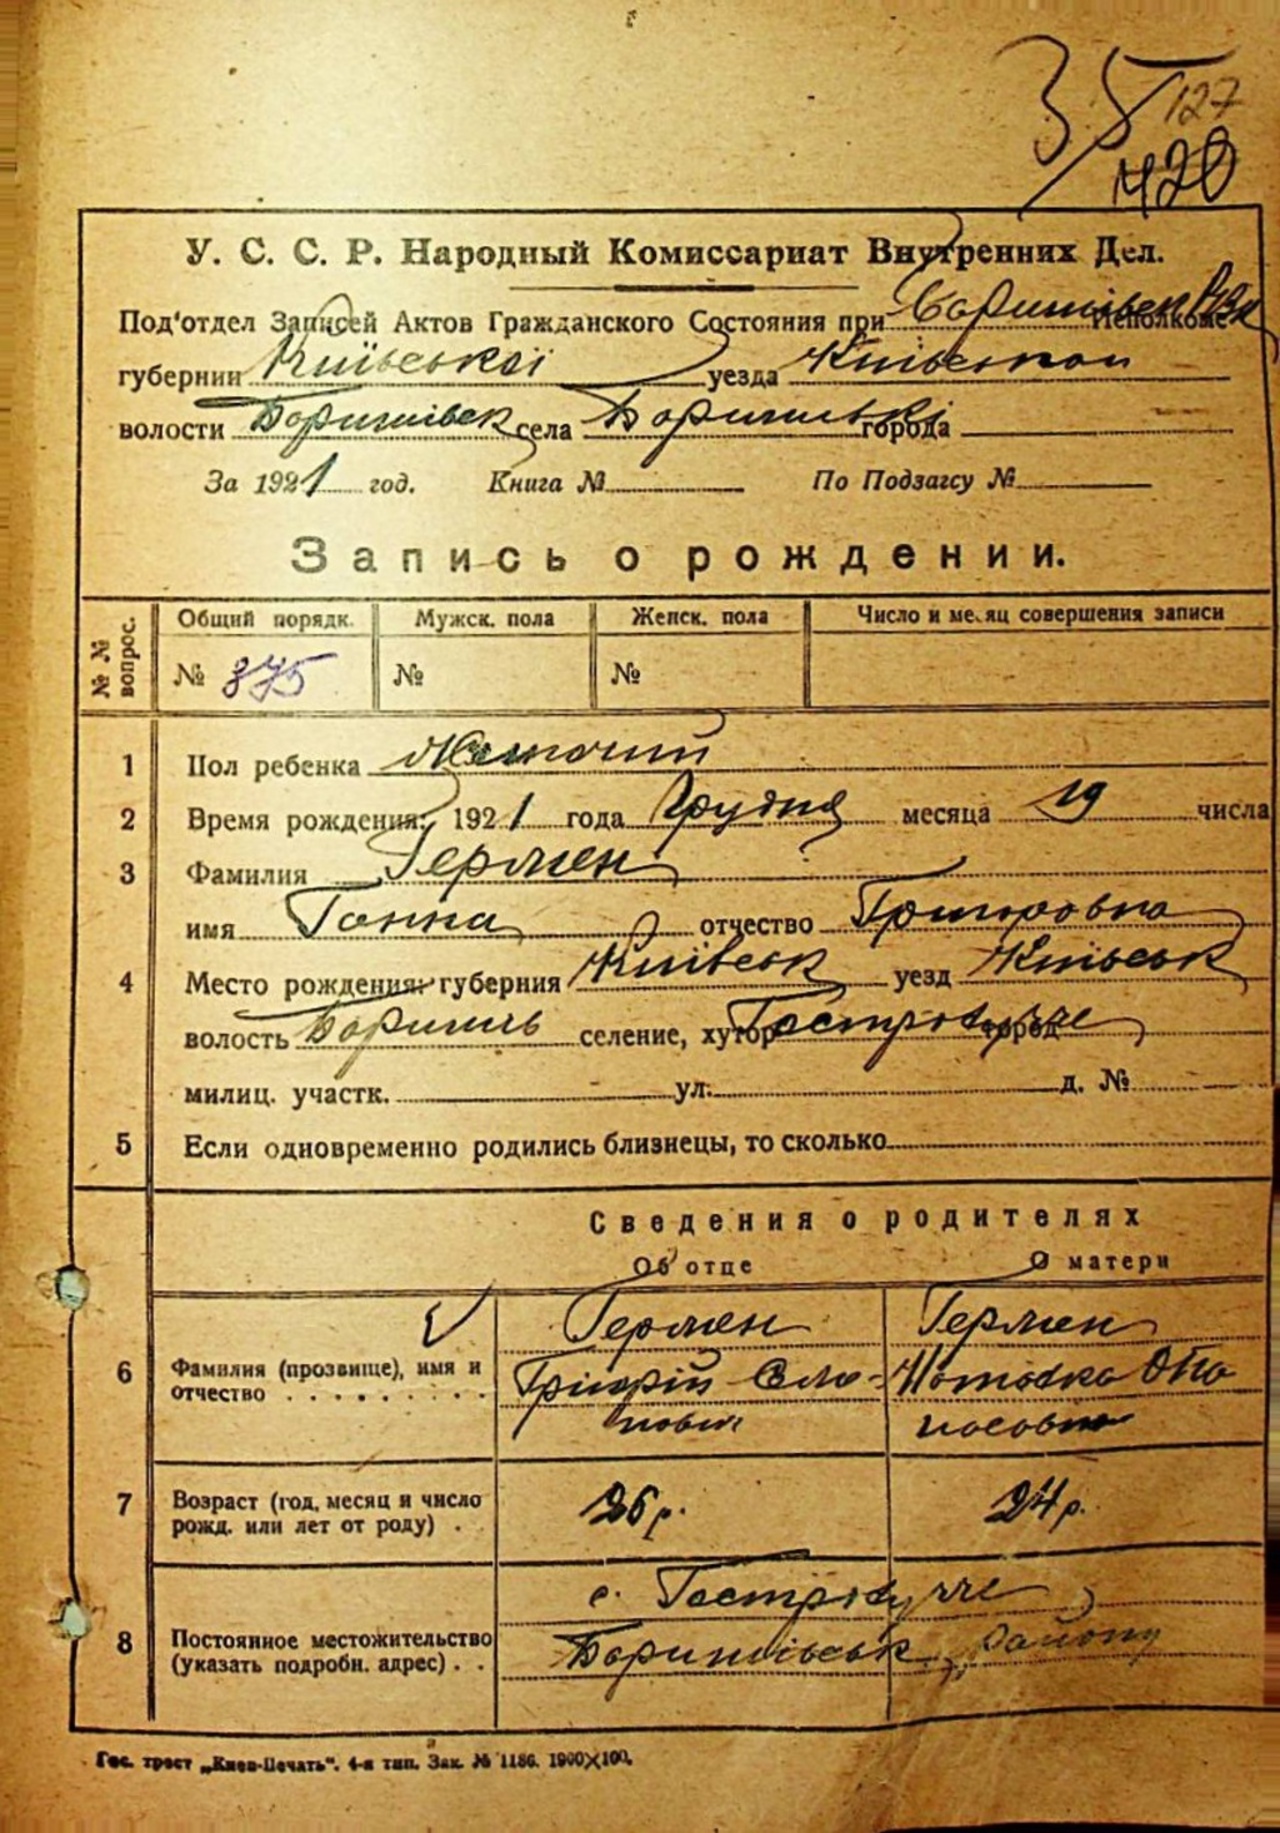 35
127
420
У. С. С. Р. Народный Комиссариат Внутренних Дел.
Под'отдел Записей Актов Гражданского Состояния при Исполкоме
губернии Київської уезда Київської
волости Бориспільск села Бориспілі города
За 1921 год. Книга № По Подзагсу №
Запись о рождении.
№ № вопрос. Общий порядк. Мужск. пола Женск. пола Число и месяц совершения записи
№ 375 № №
1 Пол ребенка Жіночий
2 Время рождения: 1921 года Грудня месяца 19 числа
3 Фамилия Гермен
имя Ганна отчество Григоровна
4 Место рождения: губерния Київськ уезд Київськ
волость Бориспиль селение, хутор город
милиц. участк. ул. д. №
5 Если одновременно родились близнецы, то сколько
Сведения о родителях
Об отце О матери
6 Фамилия (прозвище), имя и отчество Гермен Гермен
Грігорій
7 Возраст (год, месяц и число рожд. или лет от роду) 26 р. 24 р.
8 Постоянное местожительство (указать подробн. адрес) с.
Бориспільськ району
Гос. трест „Киев-Печать". 4-я тип. Зак. № 1186. 1900×100.